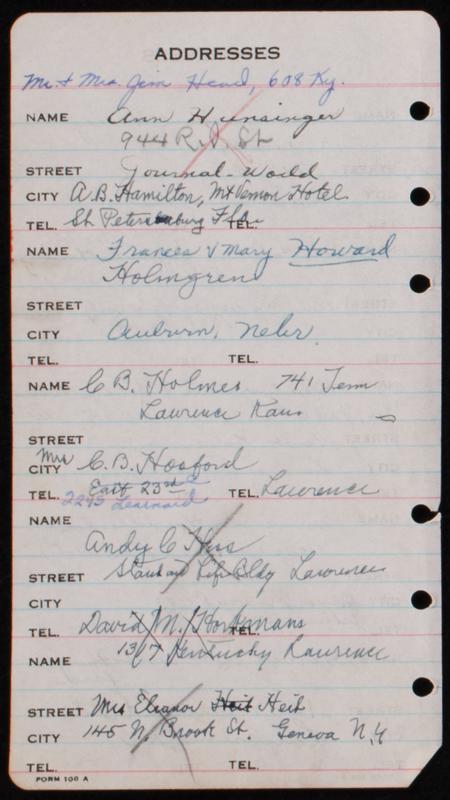 ADDRESSES
Mr. + Mrs. Jim Head, 608 Ky.
NAME Ann Hunsinger
944 R.I. St
STREET Journal-World
CITY A.B. Hamilton, Mt Vernon Hotel
TEL. St. Petersburg Fla TEL.
NAME Frances & Mary Howard
Holmgren
STREET
CITY Auburn, Nebr.
TEL. TEL.
NAME C B. Holmes 741 Tenn
Lawrence Kans
STREET
Mrs
CITY C.B. Hosford
TEL. East 23rd TEL. Lawrence
2243 Learnard
NAME
Andy C
STREET Life Bldg Lawrence
CITY
TEL. David M. TEL.
NAME 1317 Kentucky Lawrence
STREET Mrs Eleanor Heit Heit
CITY 145 N. Brook St. Geneva N.Y
TEL. TEL.
FORM 100 A